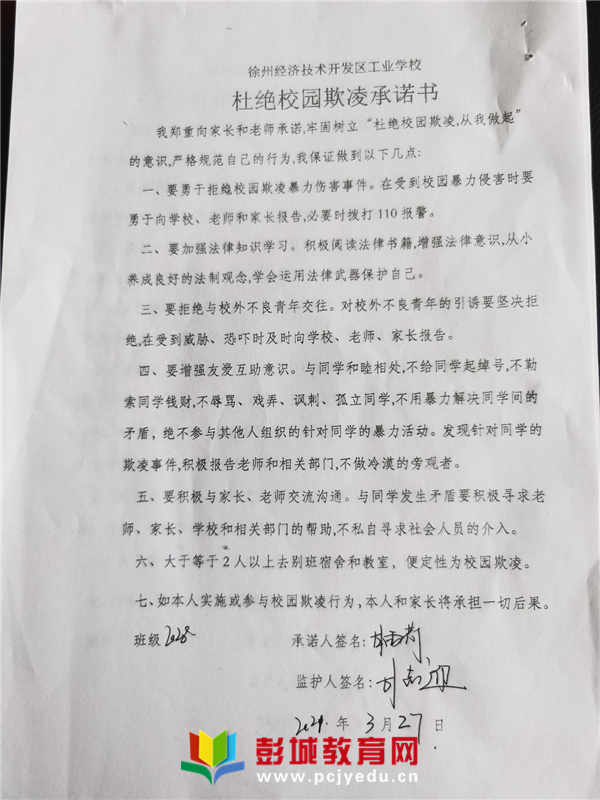 徐州经济技术开发区工业学校
杜绝校园欺凌承诺书
我郑重向家长和老师承诺,牢固树立“杜绝校园欺凌,从我做起”
的意识,严格规范自己的行为,我保证做到以下几点:
一、要勇于拒绝校园欺凌暴力伤害事件。在受到校园暴力侵害时要
勇于向学校、老师和家长报告,必要时拨打110报警。
二、要加强法律知识学习。积极阅读法律书籍,增强法律意识,从小
养成良好的法制观念,学会运用法律武器保护自己。
三、要拒绝与校外不良青年交往。对校外不良青年的引诱要坚决拒
绝,在受到威胁、恐吓时及时向学校、老师、家长报告。
四、要增强友爱互助意识。与同学和睦相处,不给同学起绰号,不勒
索同学钱财,不辱骂、戏弄、讽刺、孤立同学,不用暴力解决同学间的
矛盾，绝不参与其他人组织的针对同学的暴力活动。发现针对同学的
欺凌事件,积极报告老师和相关部门,不做冷漠的旁观者。
五、要积极与家长、老师交流沟通。与同学发生矛盾要积极寻求老
师、家长、学校和相关部门的帮助,不私自寻求社会人员的介入。
六、大于等于2人以上去别班宿舍和教室，便定性为校园欺凌。
七、如本人实施或参与校园欺凌行为,本人和家长将承担一切后果。
班级 承诺人签名:
监护人签名:
年 3月27日
彭城教育网
www.pcjyedu.cn